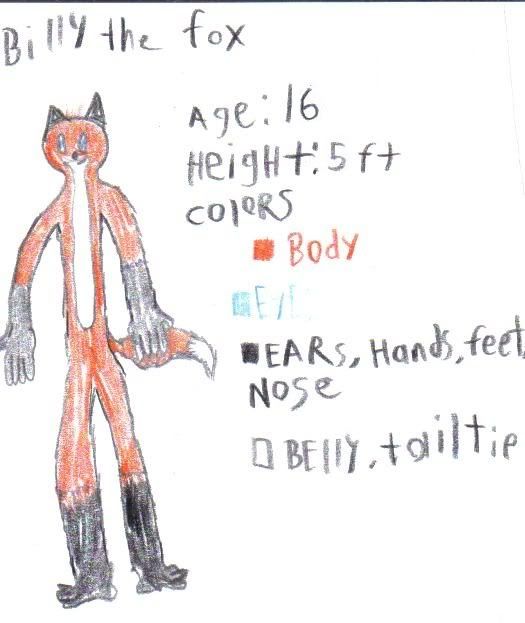 Billy the fox
Age: 16
Height: 5 ft
COLORS
Body
EyE
EARs, Hands, feet,
Nose
BElly, tailtip